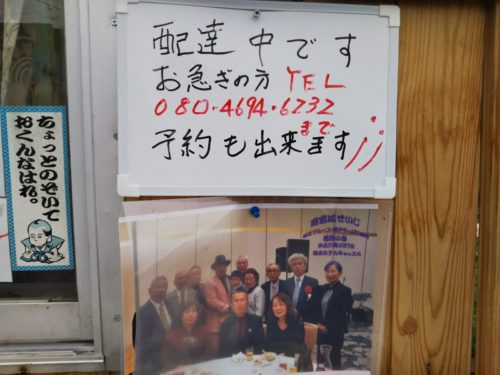 配達中です
お急ぎの方 TEL
080・4694・6232
まで
予約も出来ます!!
ちょっとのぞいて
おくんなはれ。